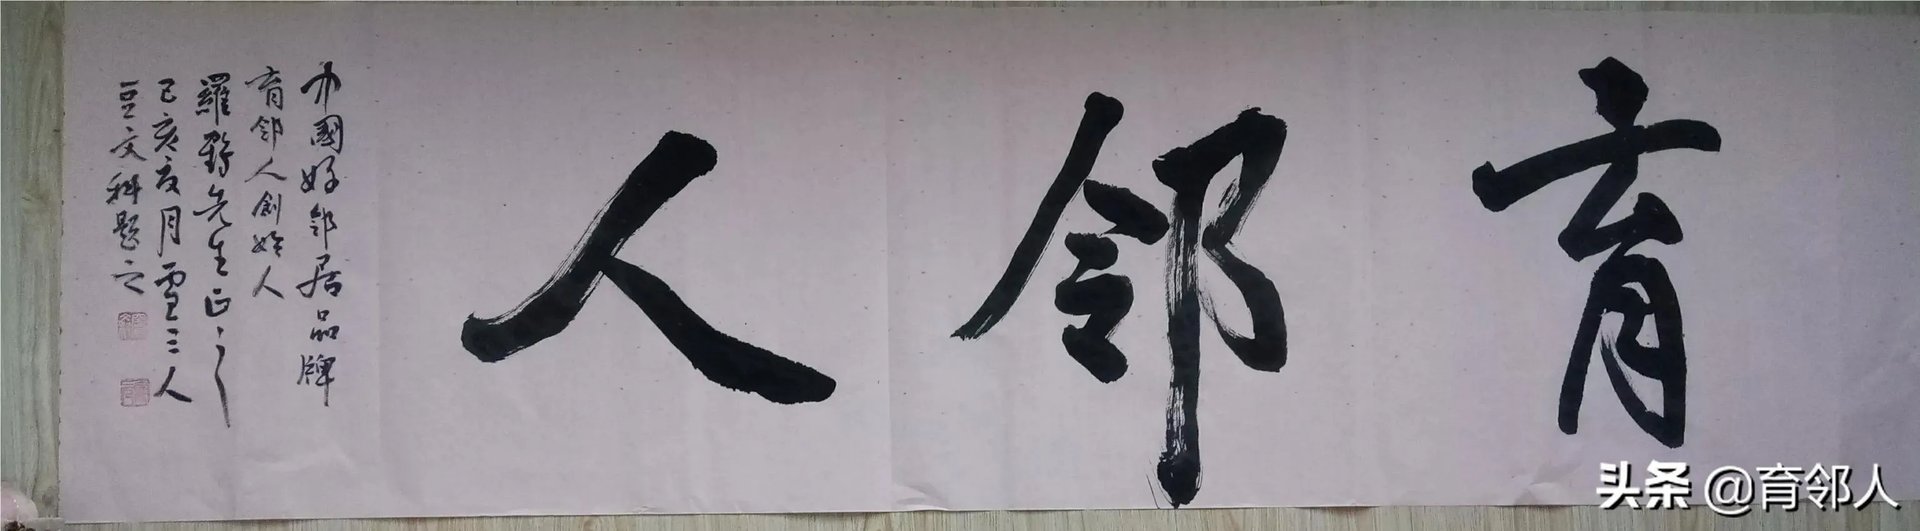 育邻人
中國好邻居品牌
育邻人創始人
羅先生正之
己亥夏月雪三人
豆文科题之
头条 @育邻人